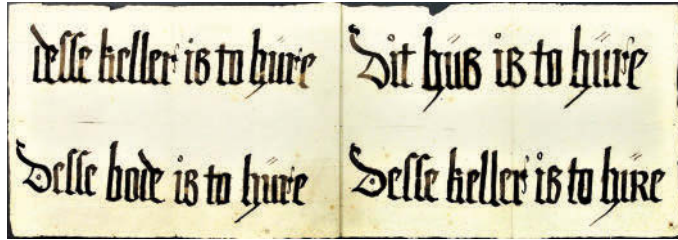 desse keller is to hüre
Desse bode is to hure
Dit hüs is to hüre
Desse keller is to hure